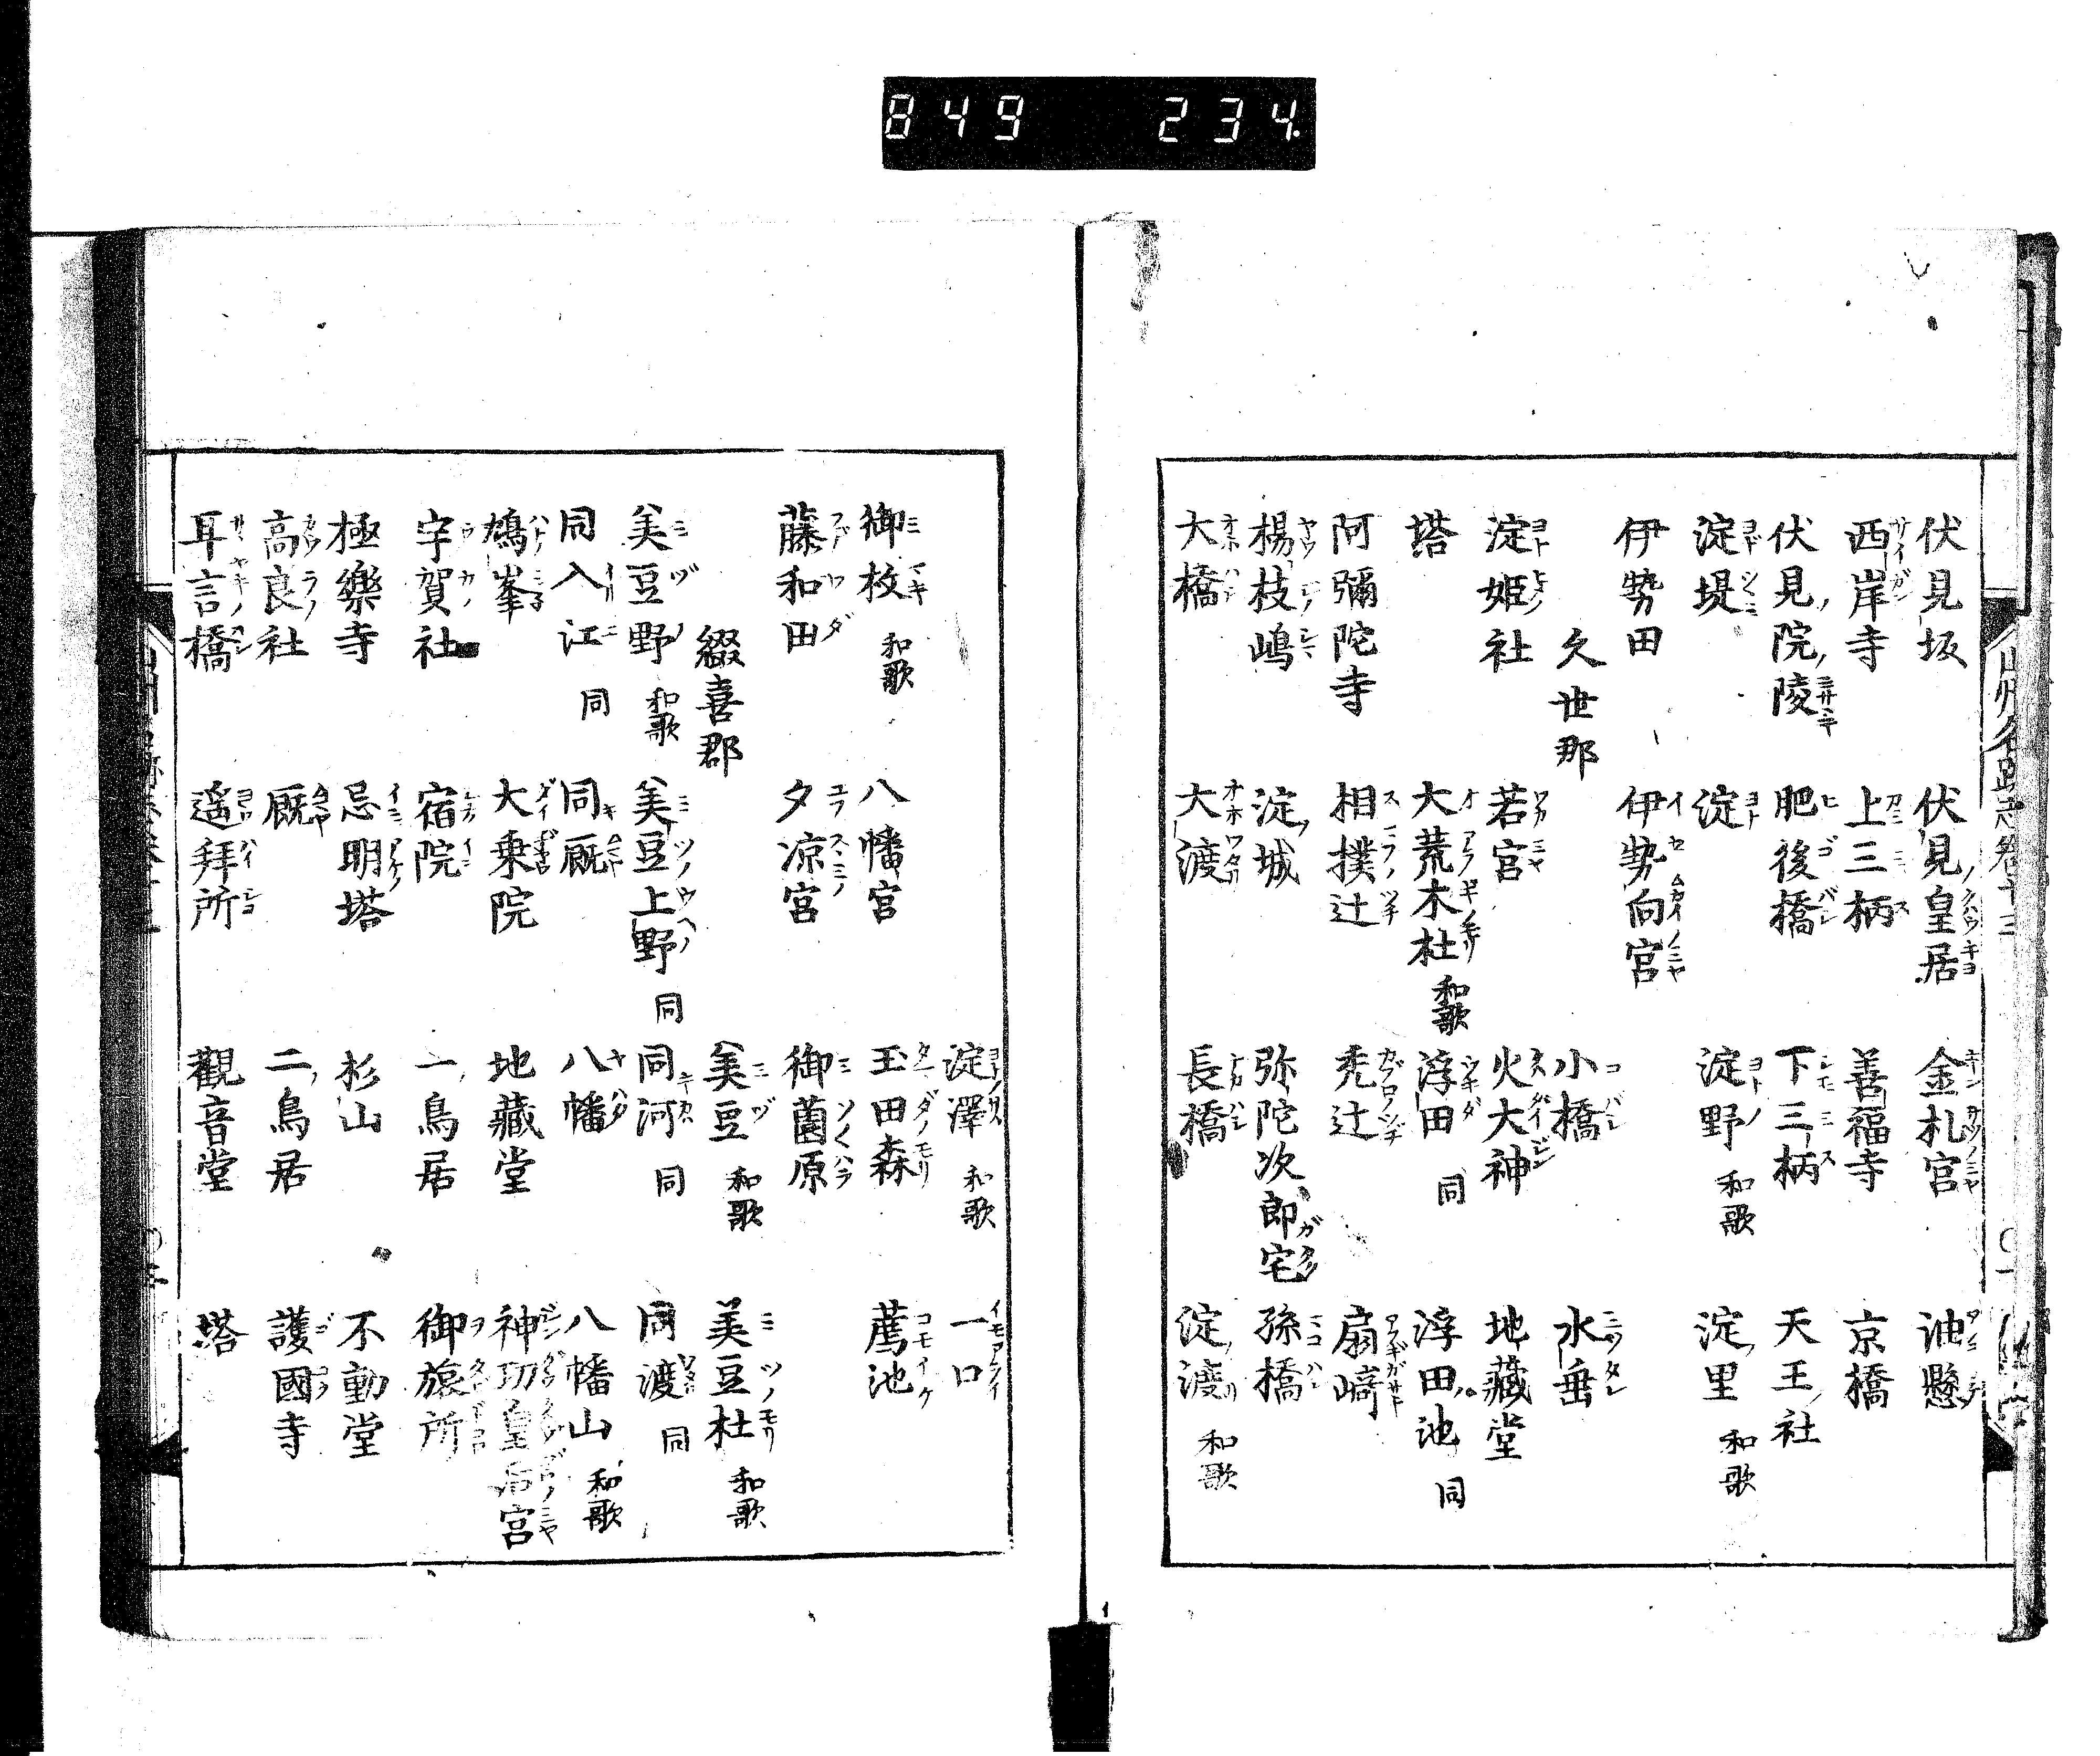 849 234.
山州名跡志卷十三
伏見坂 伏見皇居 金札宮 油懸
西岸寺 上三栖 善福寺 京橋
伏見院陵 肥後橋 下三栖 天王社
淀堤 淀 淀野 和歌 淀里 和歌
伊勢田 伊勢向宮
久世郡 小橋 水垂
淀姫社 若宮 火大神 地藏堂
塔 大荒木杜 和歌 浮田 同 浮田池 同
阿彌陀寺 相撲辻 禿辻 扇嶋
楊枝嶋 淀城 弥陀次郎宅 孫橋
大橋 大渡 長橋 淀渡 和歌
淀澤 和歌 一口
御枚 和歌 八幡宮 玉田森 薦池
藤和田 夕凉宮 御薗原
綴喜郡 美豆 和歌 美豆杜 和歌
美豆野 和歌 美豆上野 同 同河 同 同渡 同
同入江 同 同厩 八幡 八幡山 和歌
鳩峯 大乗院 地藏堂 神功皇后宮
宇賀社 宿院 一鳥居 御旅所
極樂寺 忌明塔 杉山 不動堂
高良社 厩 二鳥居 護國寺
耳言橋 遥拜所 觀音堂 塔